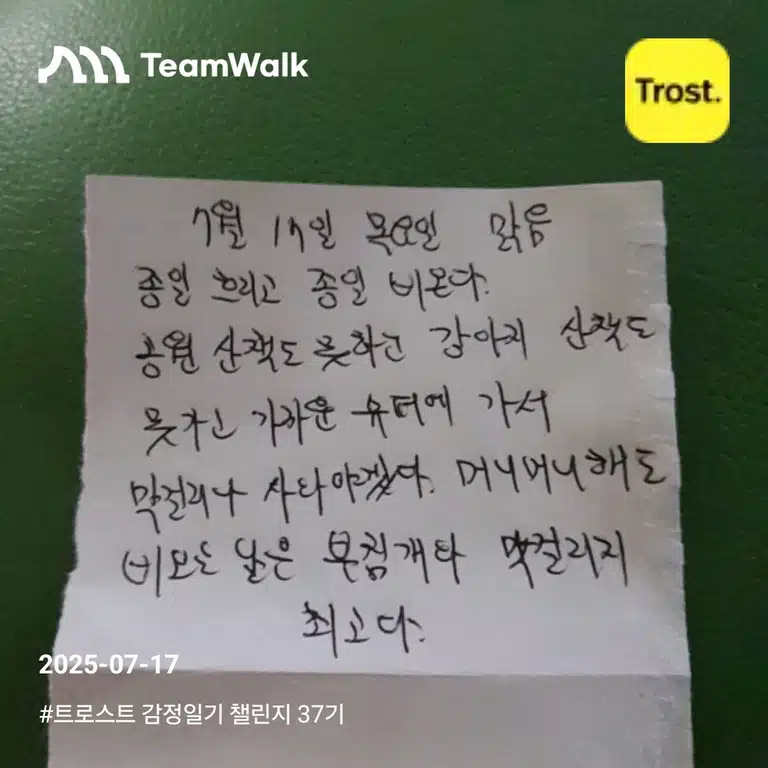 TeamWalk
Trost.
7월 17일 목요일 맑음
종일 흐리고 종일 비온다.
공원 산책도 못하고 강아지 산책도
못가고 가까운 슈퍼에 가서
막걸리나 사타야겠다. 머니머니해도
비오는 날은 부침개타 막걸리지
최고다.
2025-07-17
#트로스트 감정일기 챌린지 37기